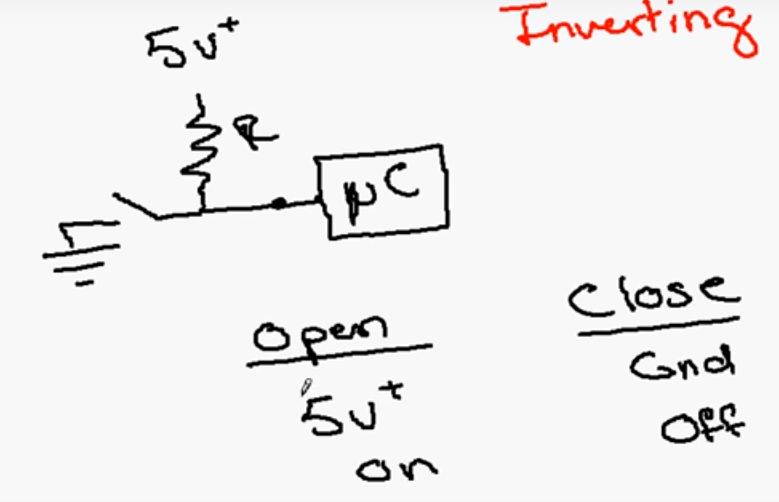 Inverting
5v+
R
µC
Open
5v+
on
Close
Gnd
Off